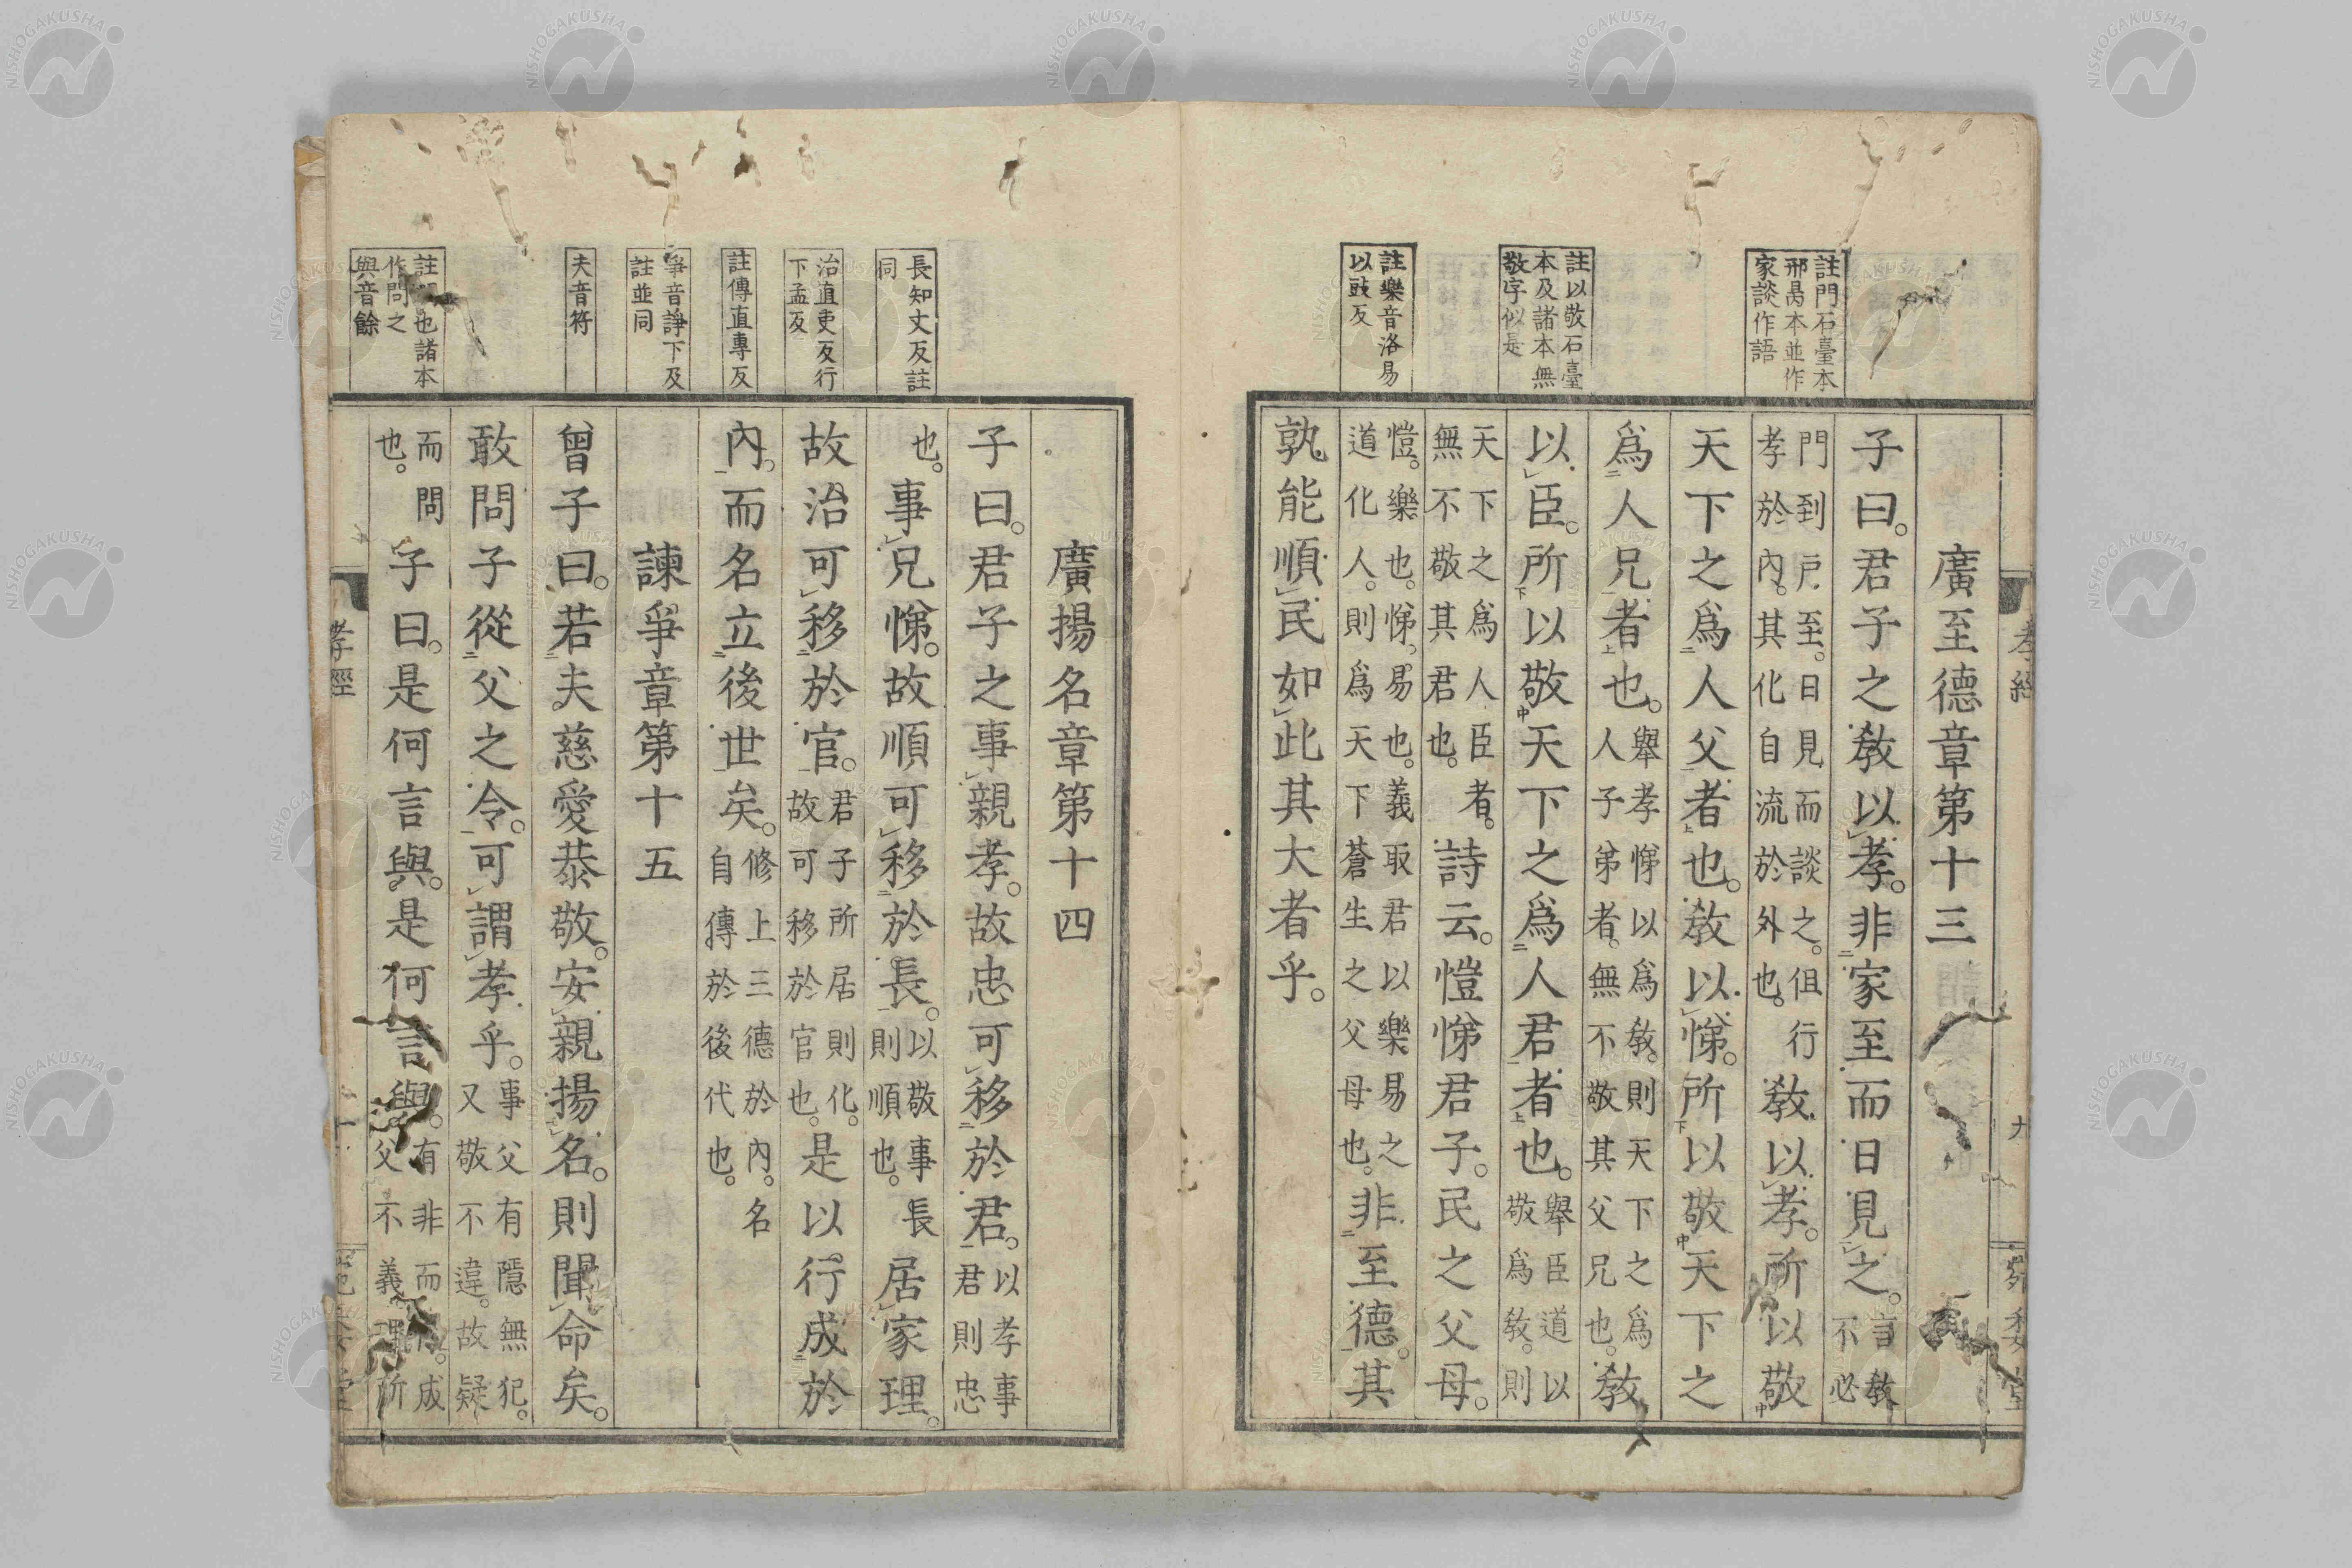 註門石臺本
邢昺本並作
家談作語
註以敬石臺
本及諸本無
敬字似是
註樂音洛易
以豉反
孝經
九
廣至德章第十三
子曰。君子之教以孝。非家至而日見之。言教不必
門到戶至。日見而談之。但行孝於內。其化自流於外也。教以孝。所以敬
天下之爲人父者也。教以悌。所以敬天下之
爲人兄者也。舉孝悌以爲教。則天下之爲人子弟者。無不敬其父兄也。教
以臣。所以敬天下之爲人君者也。舉臣道以敬爲教。則
天下之爲人臣者。無不敬其君也。詩云。愷悌君子。民之父母。
愷。樂也。悌。易也。義取君以樂易之道化人。則爲天下蒼生之父母也。非至德。其
孰能順民如此其大者乎。
長知丈反註
同
治直吏反行
下孟反
註傳直專反
爭音諍下及
註並同
夫音符
註也諸本
作問之
與音餘
廣揚名章第十四
子曰。君子之事親孝。故忠可移於君。以孝事君則忠
也。事兄悌。故順可移於長。以敬事長則順也。居家理。
故治可移於官。君子所居則化。故可移於官也。是以行成於
內。而名立後世矣。修上三德於內。名自傳於後代也。
諫爭章第十五
曾子曰。若夫慈愛恭敬。安親揚名。則聞命矣。
敢問子從父之令。可謂孝乎。事父有隱無犯。又敬不違。故疑
而問也。子曰。是何言與。是何言與。有非而成父不義理所
孝經